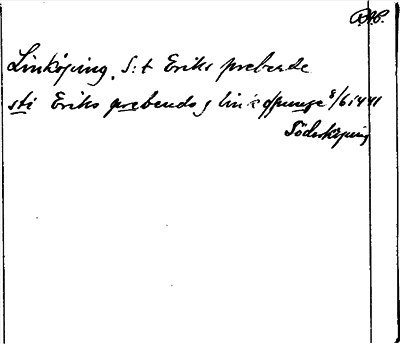 RAP.
Linköping, S:t Eriks prebende
sti Eriks prebendo j linkøpunge 8/6 1441
Söderköping